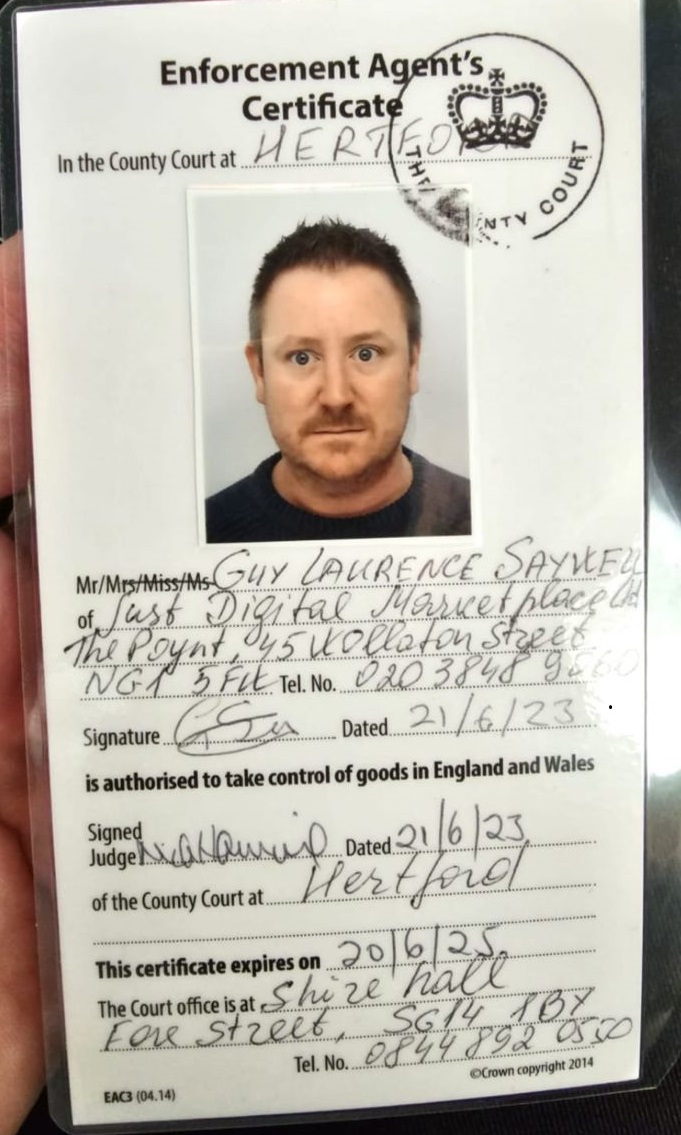 Enforcement Agent's
Certificate
THE COUNTY COURT
In the County Court at HERTFORD
Mr/Mrs/Miss/Ms GUY LAURENCE SAYWELL
of Just Digital Marketplace Ltd
The Poynt, 45 Wollaton Street
NG1 5FW Tel. No. 020 3848 9560
Signature Dated 21/6/23
is authorised to take control of goods in England and Wales
Signed
Judge Dated 21/6/23
of the County Court at Hertford
This certificate expires on 20/6/25
The Court office is at Shire hall
Fore Street, SG14 1BY
Tel. No. 0844 892 0550
©Crown copyright 2014
EAC3 (04.14)